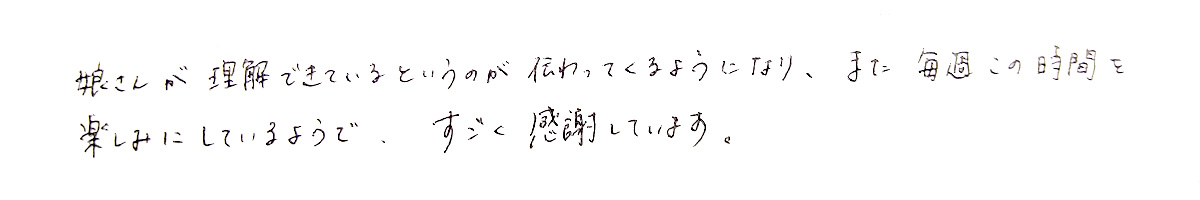 娘さんが理解できているというのが伝わってくるようになり、また毎週この時間を
楽しみにしているようで、すごく感謝しています。